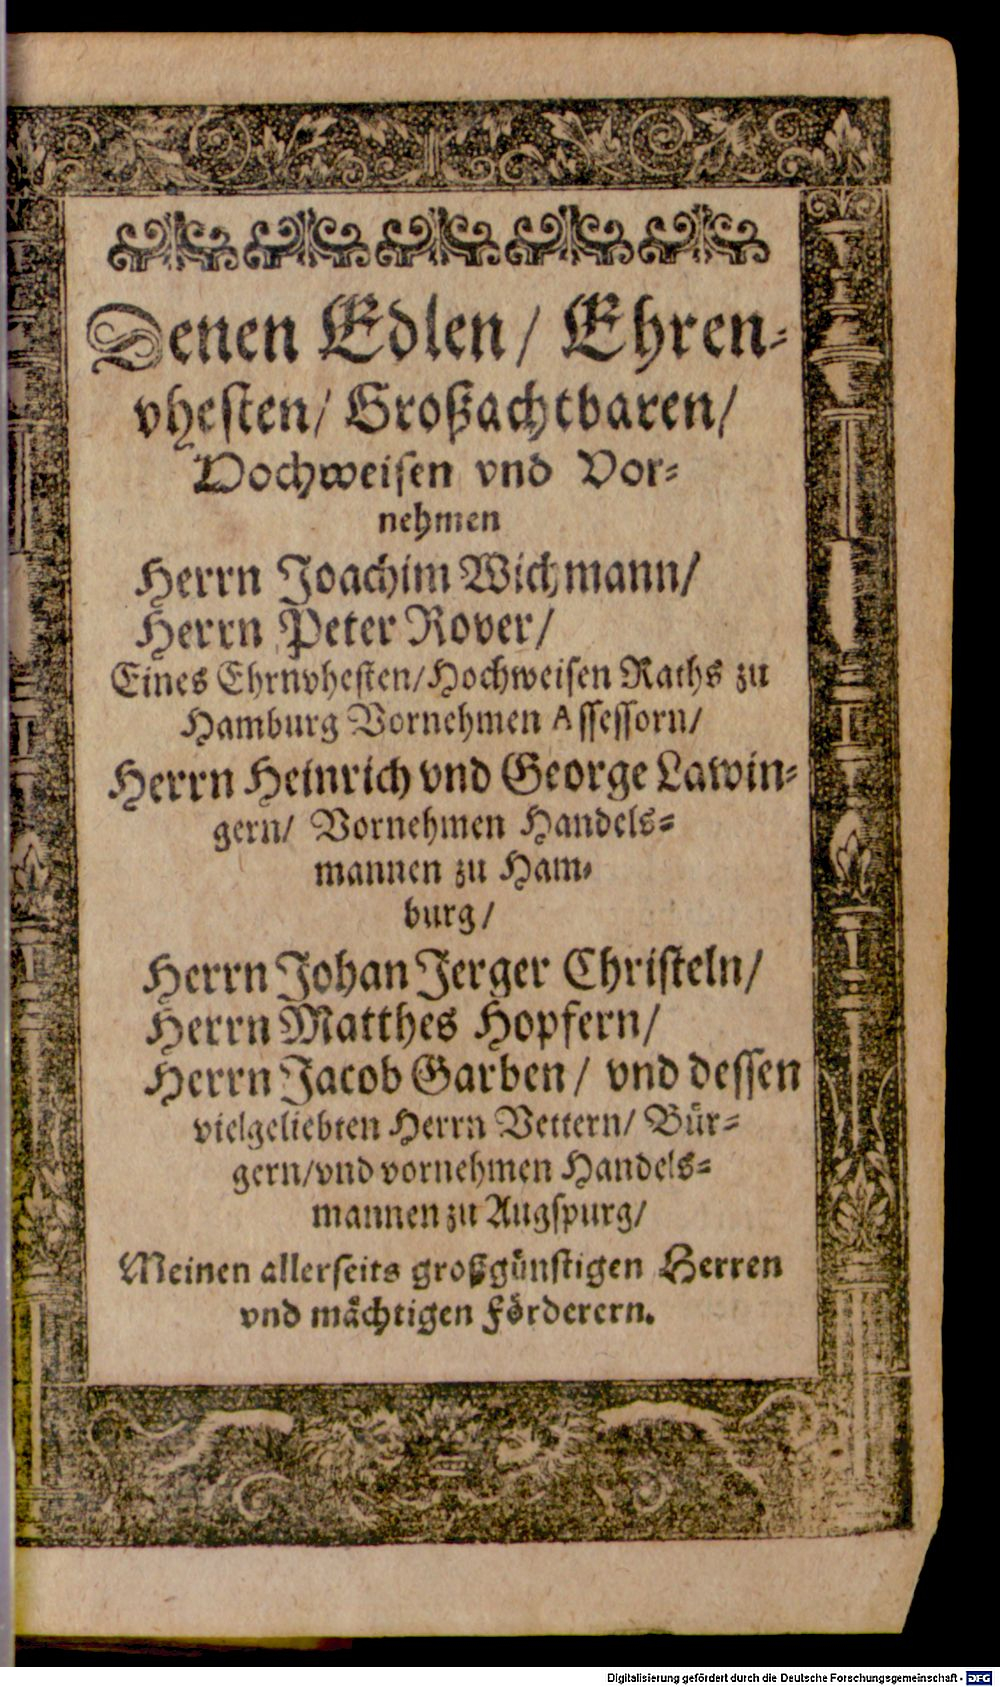 Denen Edlen/ Ehren-
vhesten/ Großachtbaren/
Vochweisen vnd Vor-
nehmen
Herrn Joachim Wichmann/
Herrn Peter Rover/
Eines Ehrnvhesten/Hochweisen Raths zu
Hamburg Vornehmen Assessorn/
Herrn Heinrich vnd George Lawin-
gern/ Vornehmen Handels-
mannen zu Ham-
burg/
Herrn Johan Jerger Christeln/
Herrn Matthes Hopfern/
Herrn Jacob Garben/ vnd dessen
vielgeliebten Herrn Vettern/ Bür-
gern/vnd vornehmen Handels-
mannen zu Augspurg/
Meinen allerseits großgünstigen Herren
vnd mächtigen Förderern.
Digitalisierung gefördert durch die Deutsche Forschungsgemeinschaft - DFG